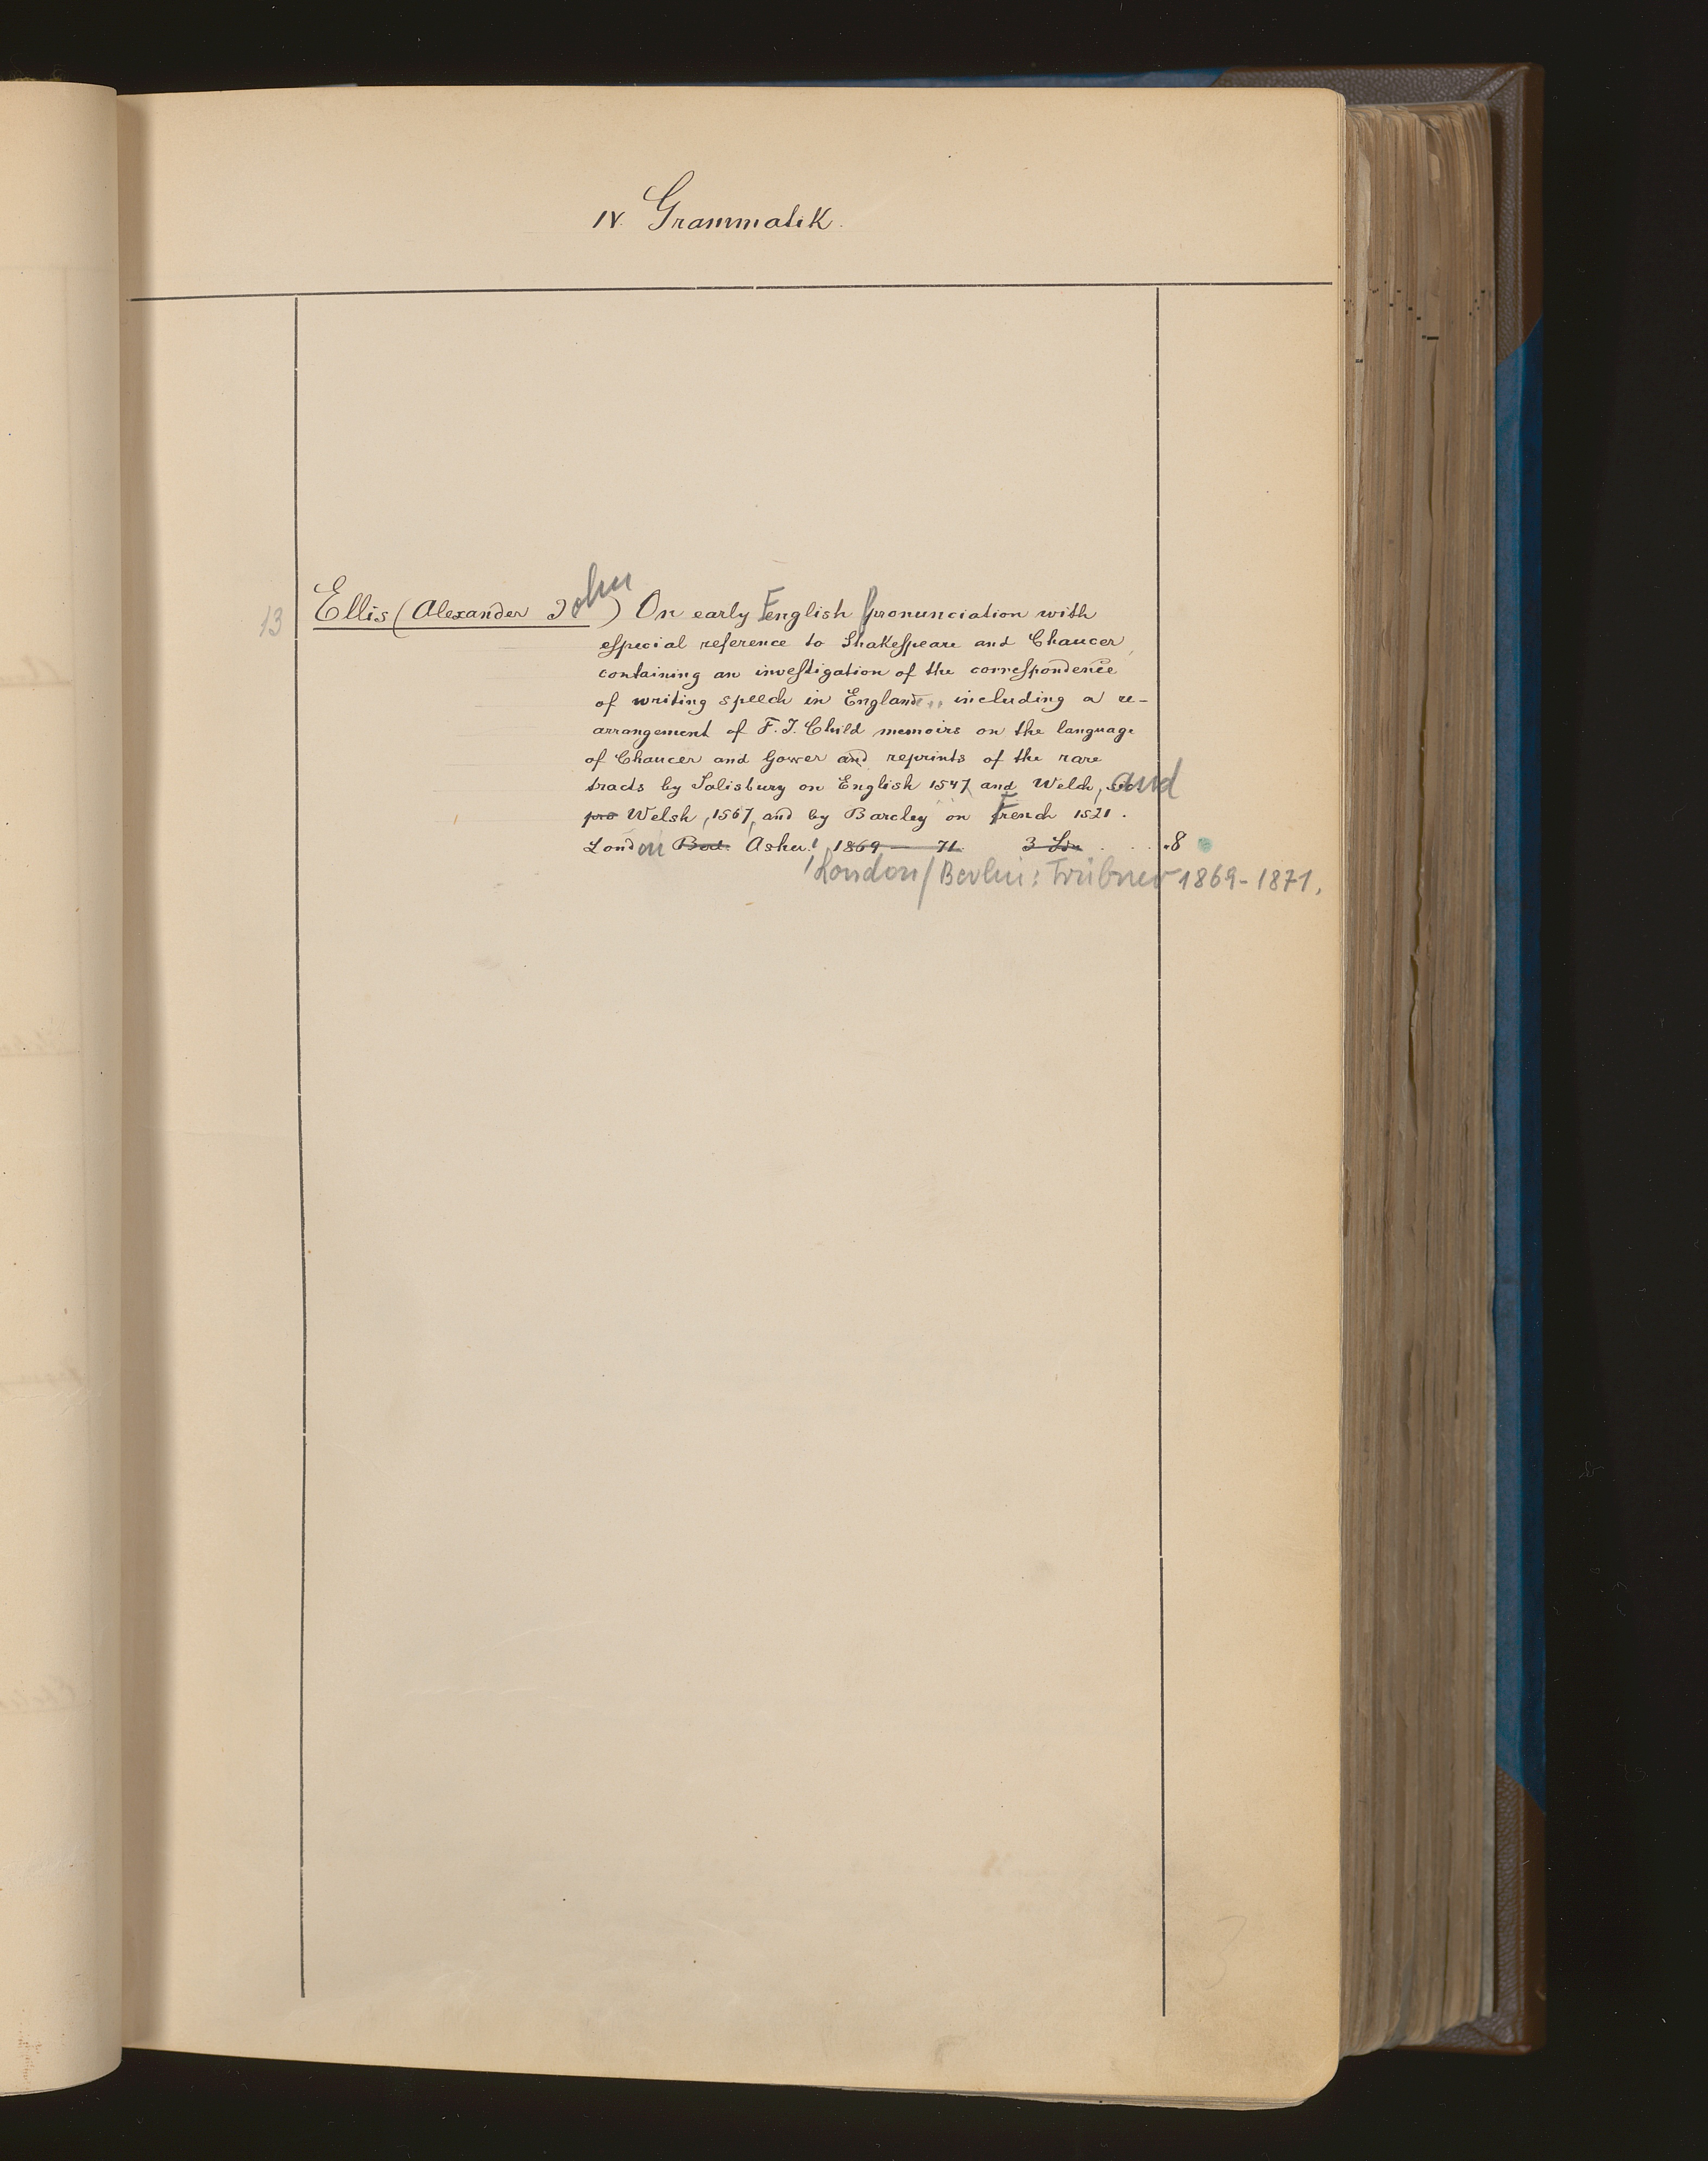 IV. Grammatik.
13 Ellis (Alexander John) On early English Pronunciation with
especial reference to Shakespeare and Chaucer,
containing an investigation of the correspondence
of writing speech in England, including a re-
arrangement of F. J. Child memoirs on the language
of Chaucer and Gower and reprints of the rare
tracts by Salisbury on English 1547 and Welch, and
pro Welsh, 1567, and by Barcley on French 1521.
London Asher 1869 — 71. 8
London / Berlin: Trübner 1869-1871.